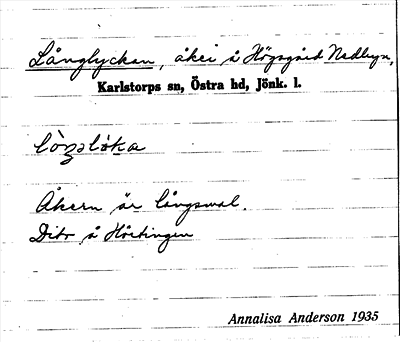 Långlyckan, åker å Högsgård Nedbyn,
Karlstorps sn, Östra hd, Jönk. l.
Åkern är långsmal.
Dito å Hörtingen
Annalisa Anderson 1935